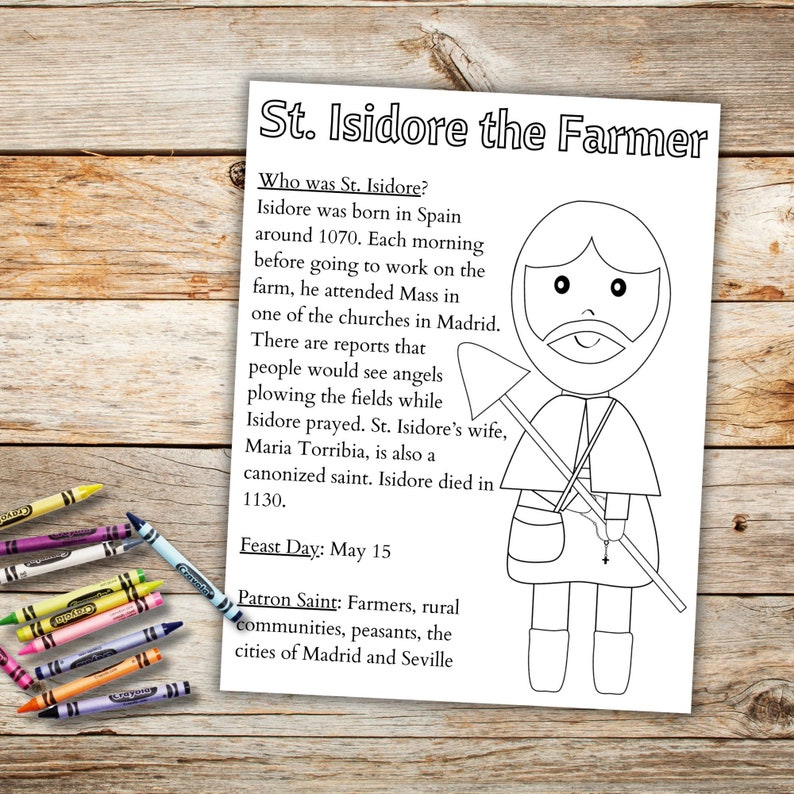 St. Isidore the Farmer
Who was St. Isidore?
Isidore was born in Spain
around 1070. Each morning
before going to work on the
farm, he attended Mass in
one of the churches in Madrid.
There are reports that
people would see angels
plowing the fields while
Isidore prayed. St. Isidore's wife,
Maria Torribia, is also a
canonized saint. Isidore died in
1130.
Feast Day: May 15
Patron Saint: Farmers, rural
communities, peasants, the
cities of Madrid and Seville
Crayola
Crayola
Crayola
Crayola
Crayola
Crayola
Crayola
Crayola